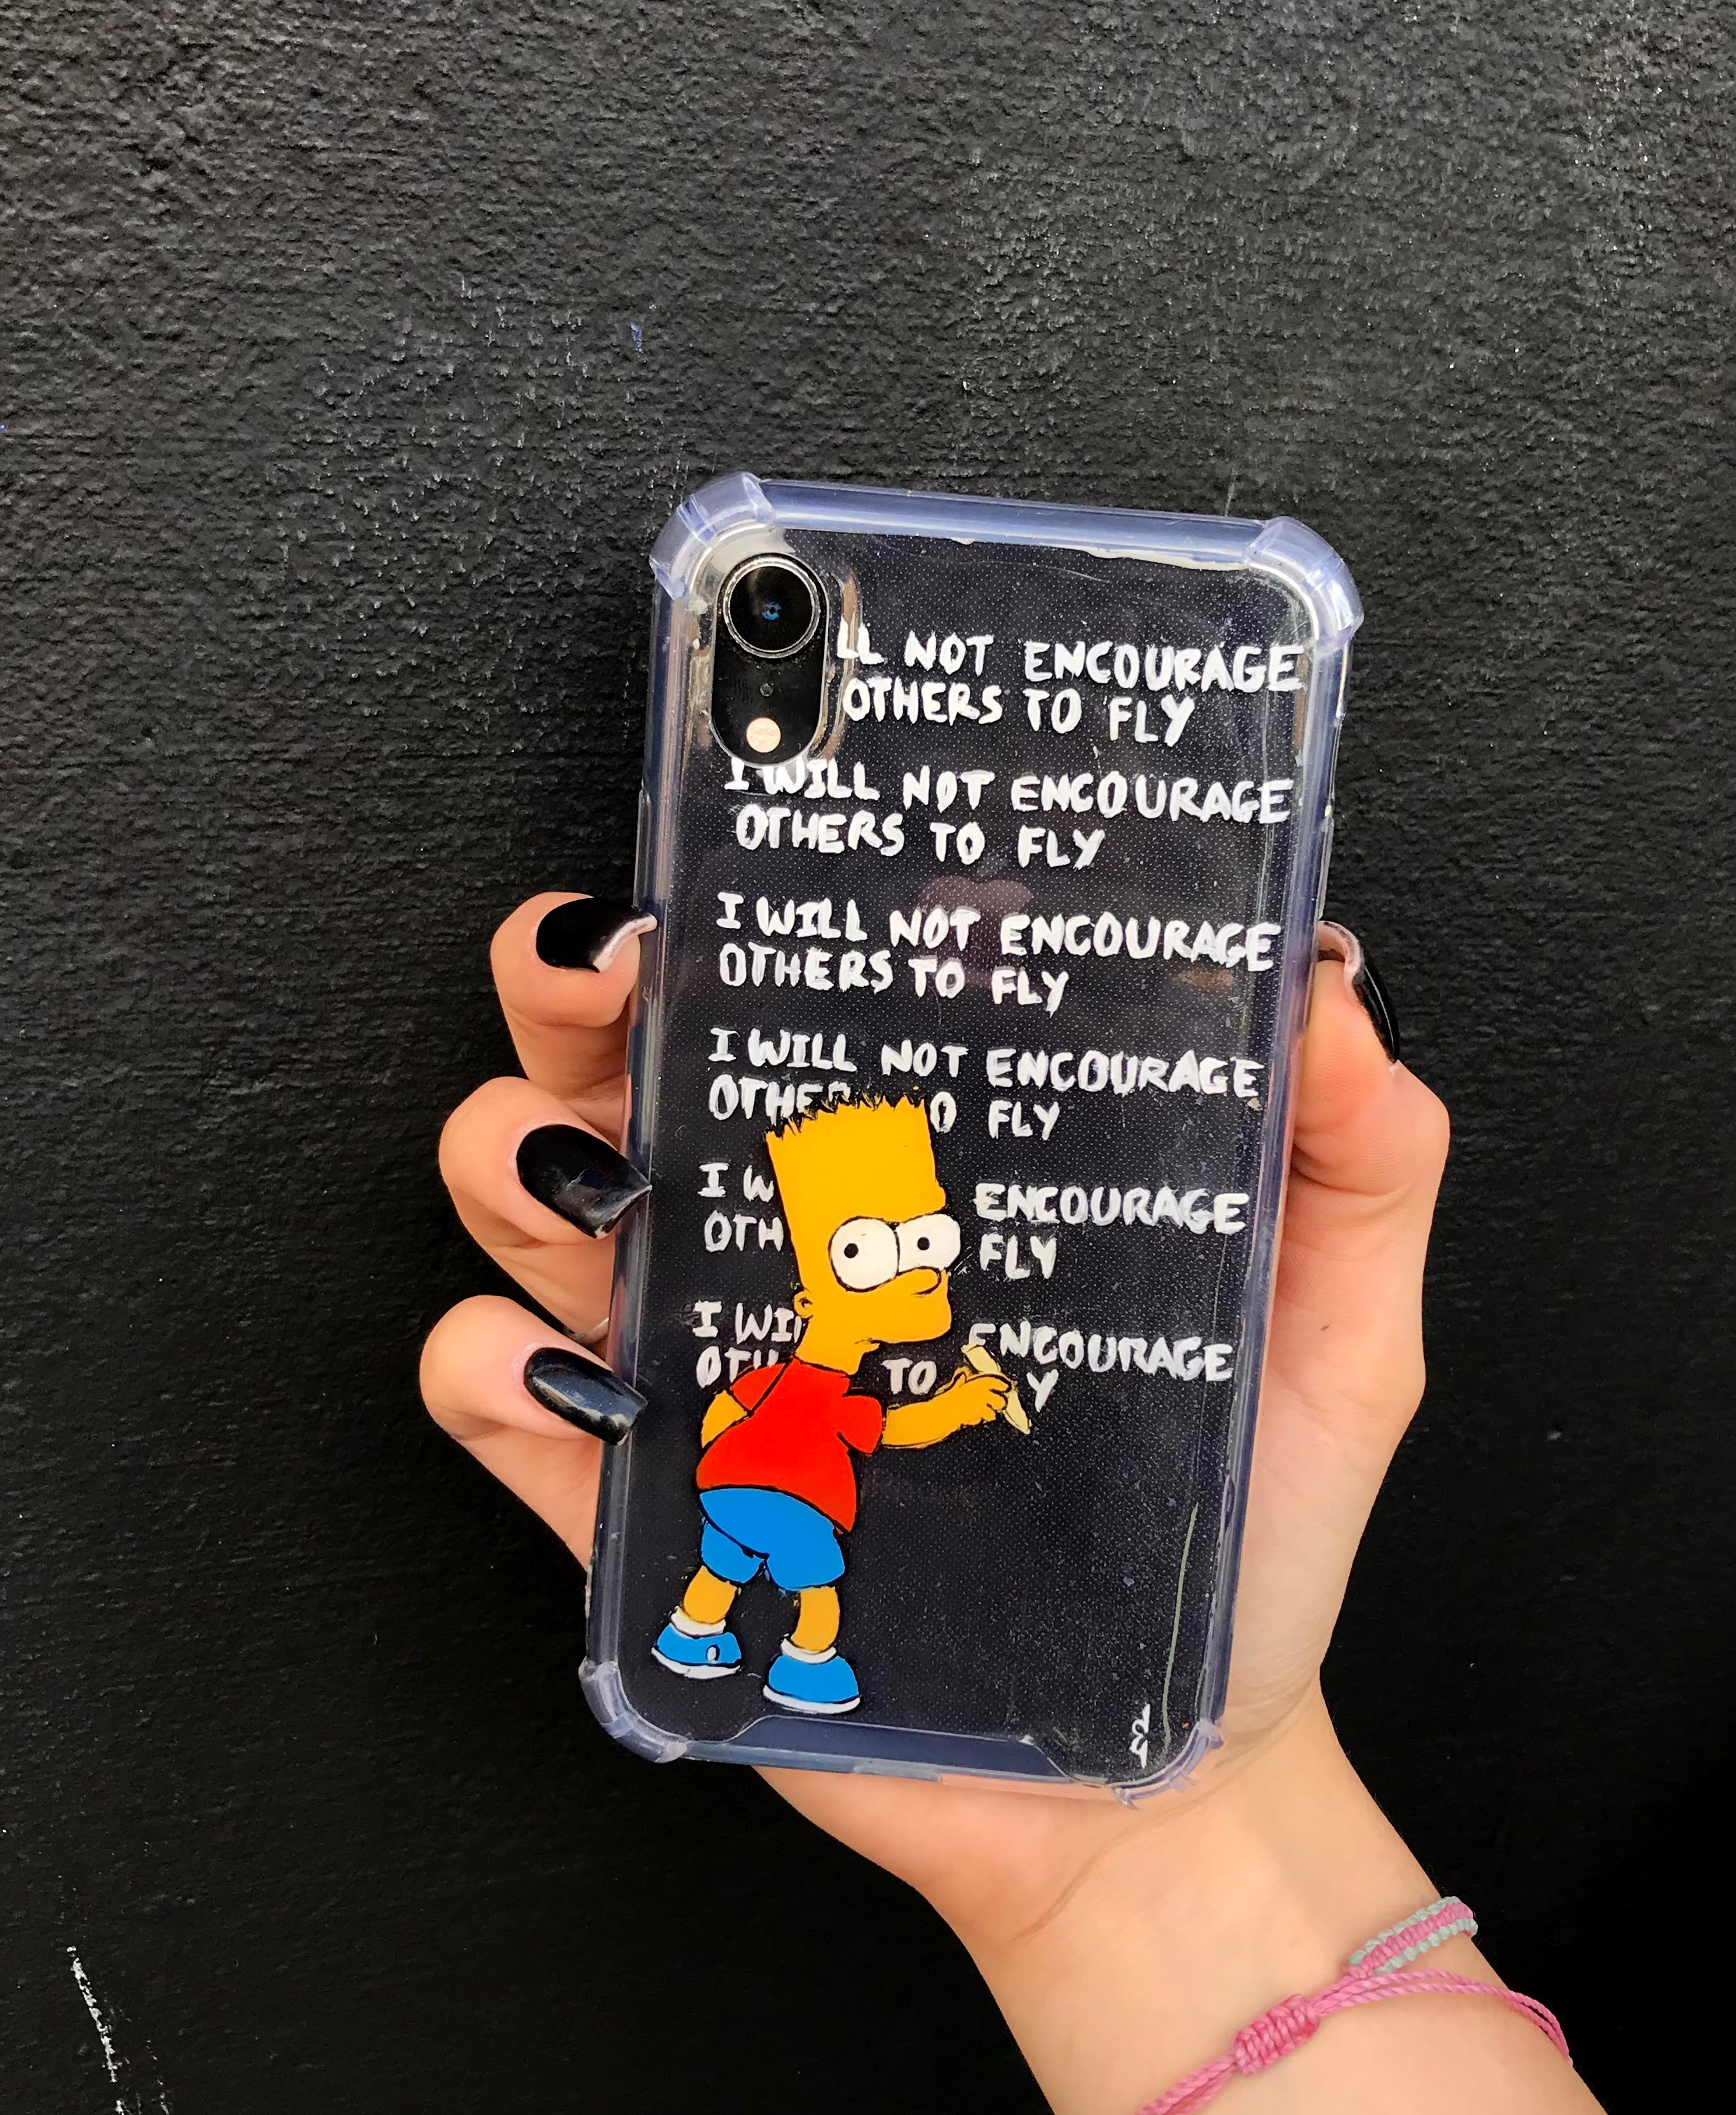 LL NOT ENCOURAGE
OTHERS TO FLY
I WILL NOT ENCOURAGE
OTHERS TO FLY
I WILL NOT ENCOURAGE
OTHERS TO FLY
I WILL NOT ENCOURAGE
OTHE O FLY
I W ENCOURAGE
OTH FLY
I WIL ENCOURAGE
OTH TO Y